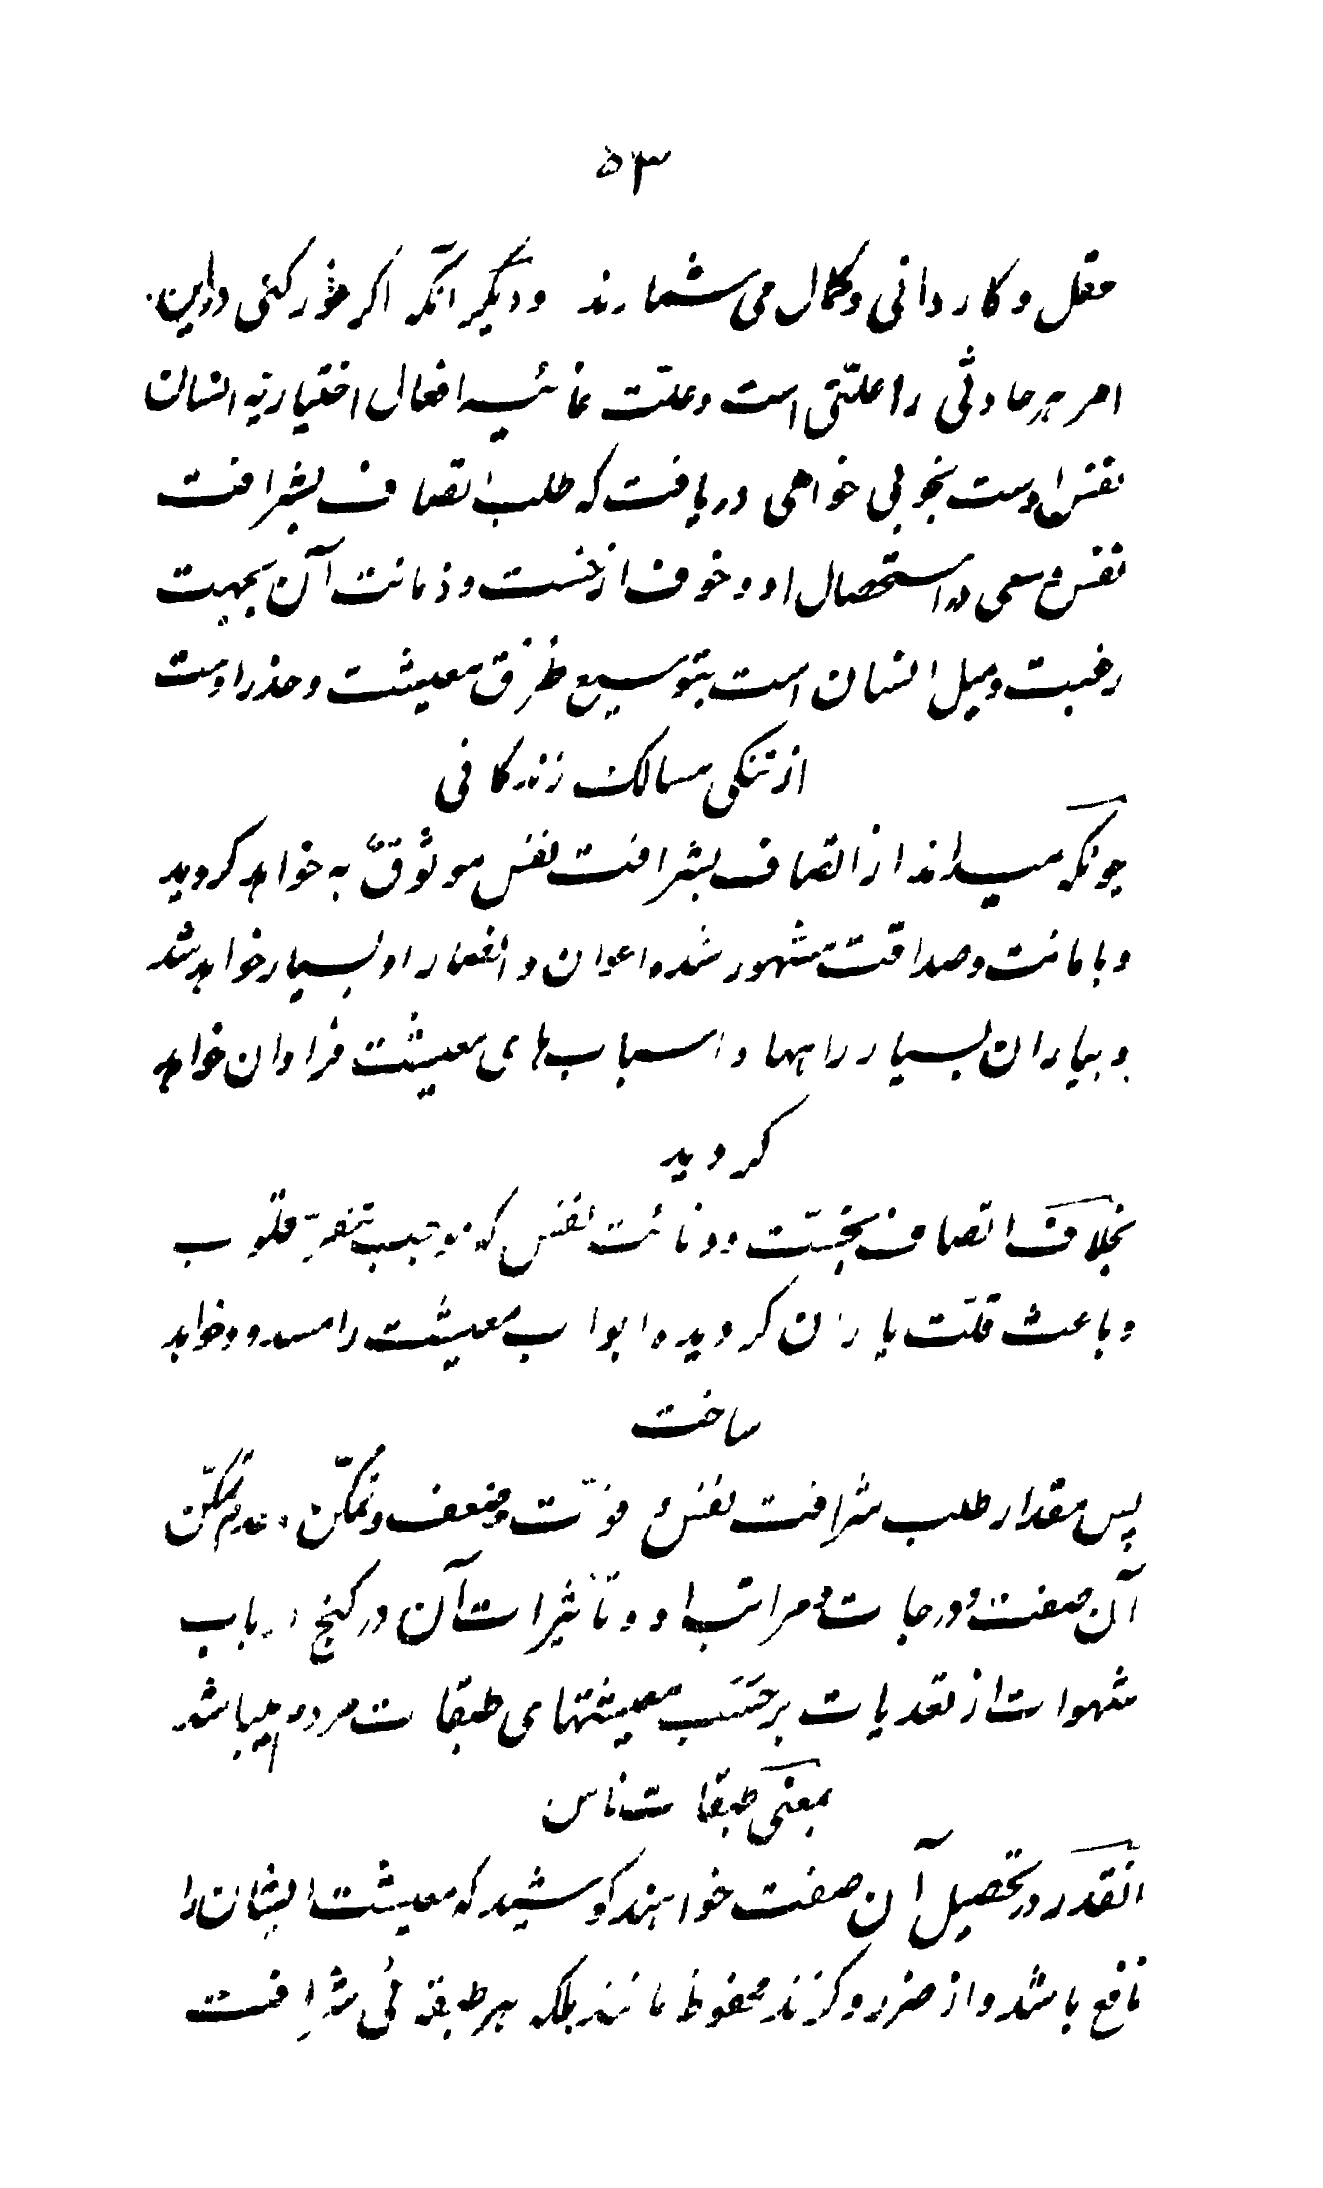 ۵۳
عقل و کاردانی و کمال می شمارند و دیگر آنکه اگر غور کنی در این
امر هر حادثی را علتی است و علّت غائیه افعال اختیاریه انسان
نفس اوست بخوبی خواهی دریافت که طلب اتصاف بشرافت
نفس و سعی در استحصال او و خوف از خسّت و دنائت آن بجهت
رغبت و میل انسان است بتوسیع طرق معیشت و حذر اوست
از تنگی مسالک زندگانی
چونکه میداند از اتصاف بشرافت نفس موثوقٌ به خواهد کردید
و بامانت و صداقت مشهور شده اعوان و انصار او بسیار خواهد شد
و بیاران بسیار راهها و اسباب‌های معیشت فراوان خواهد
کردید
بخلاف اتصاف بخسّت و دنائت نفس که موجب تنفر قلوب
و باعث قلّت یاران کردیده ابواب معیشت را مسدود خواهد
ساخت
پس مقدار طلب شرافت نفس و قوّت و ضعف و تمکّن و عدم تمکّن
آن صفت و درجات و مراتب او و تأثیرات آن در کبح ارباب
شهوات از تعدیات بر حسب معیشتهای طبقات مردم میباشد
بمعنی طبقات ناس
آنقدر در تحصیل آن صفت خواهند کوشید که معیشت ایشان را
نافع باشد و از ضرر و گزند محفوظ مانند بلکه هر طبقه ئی شرافت